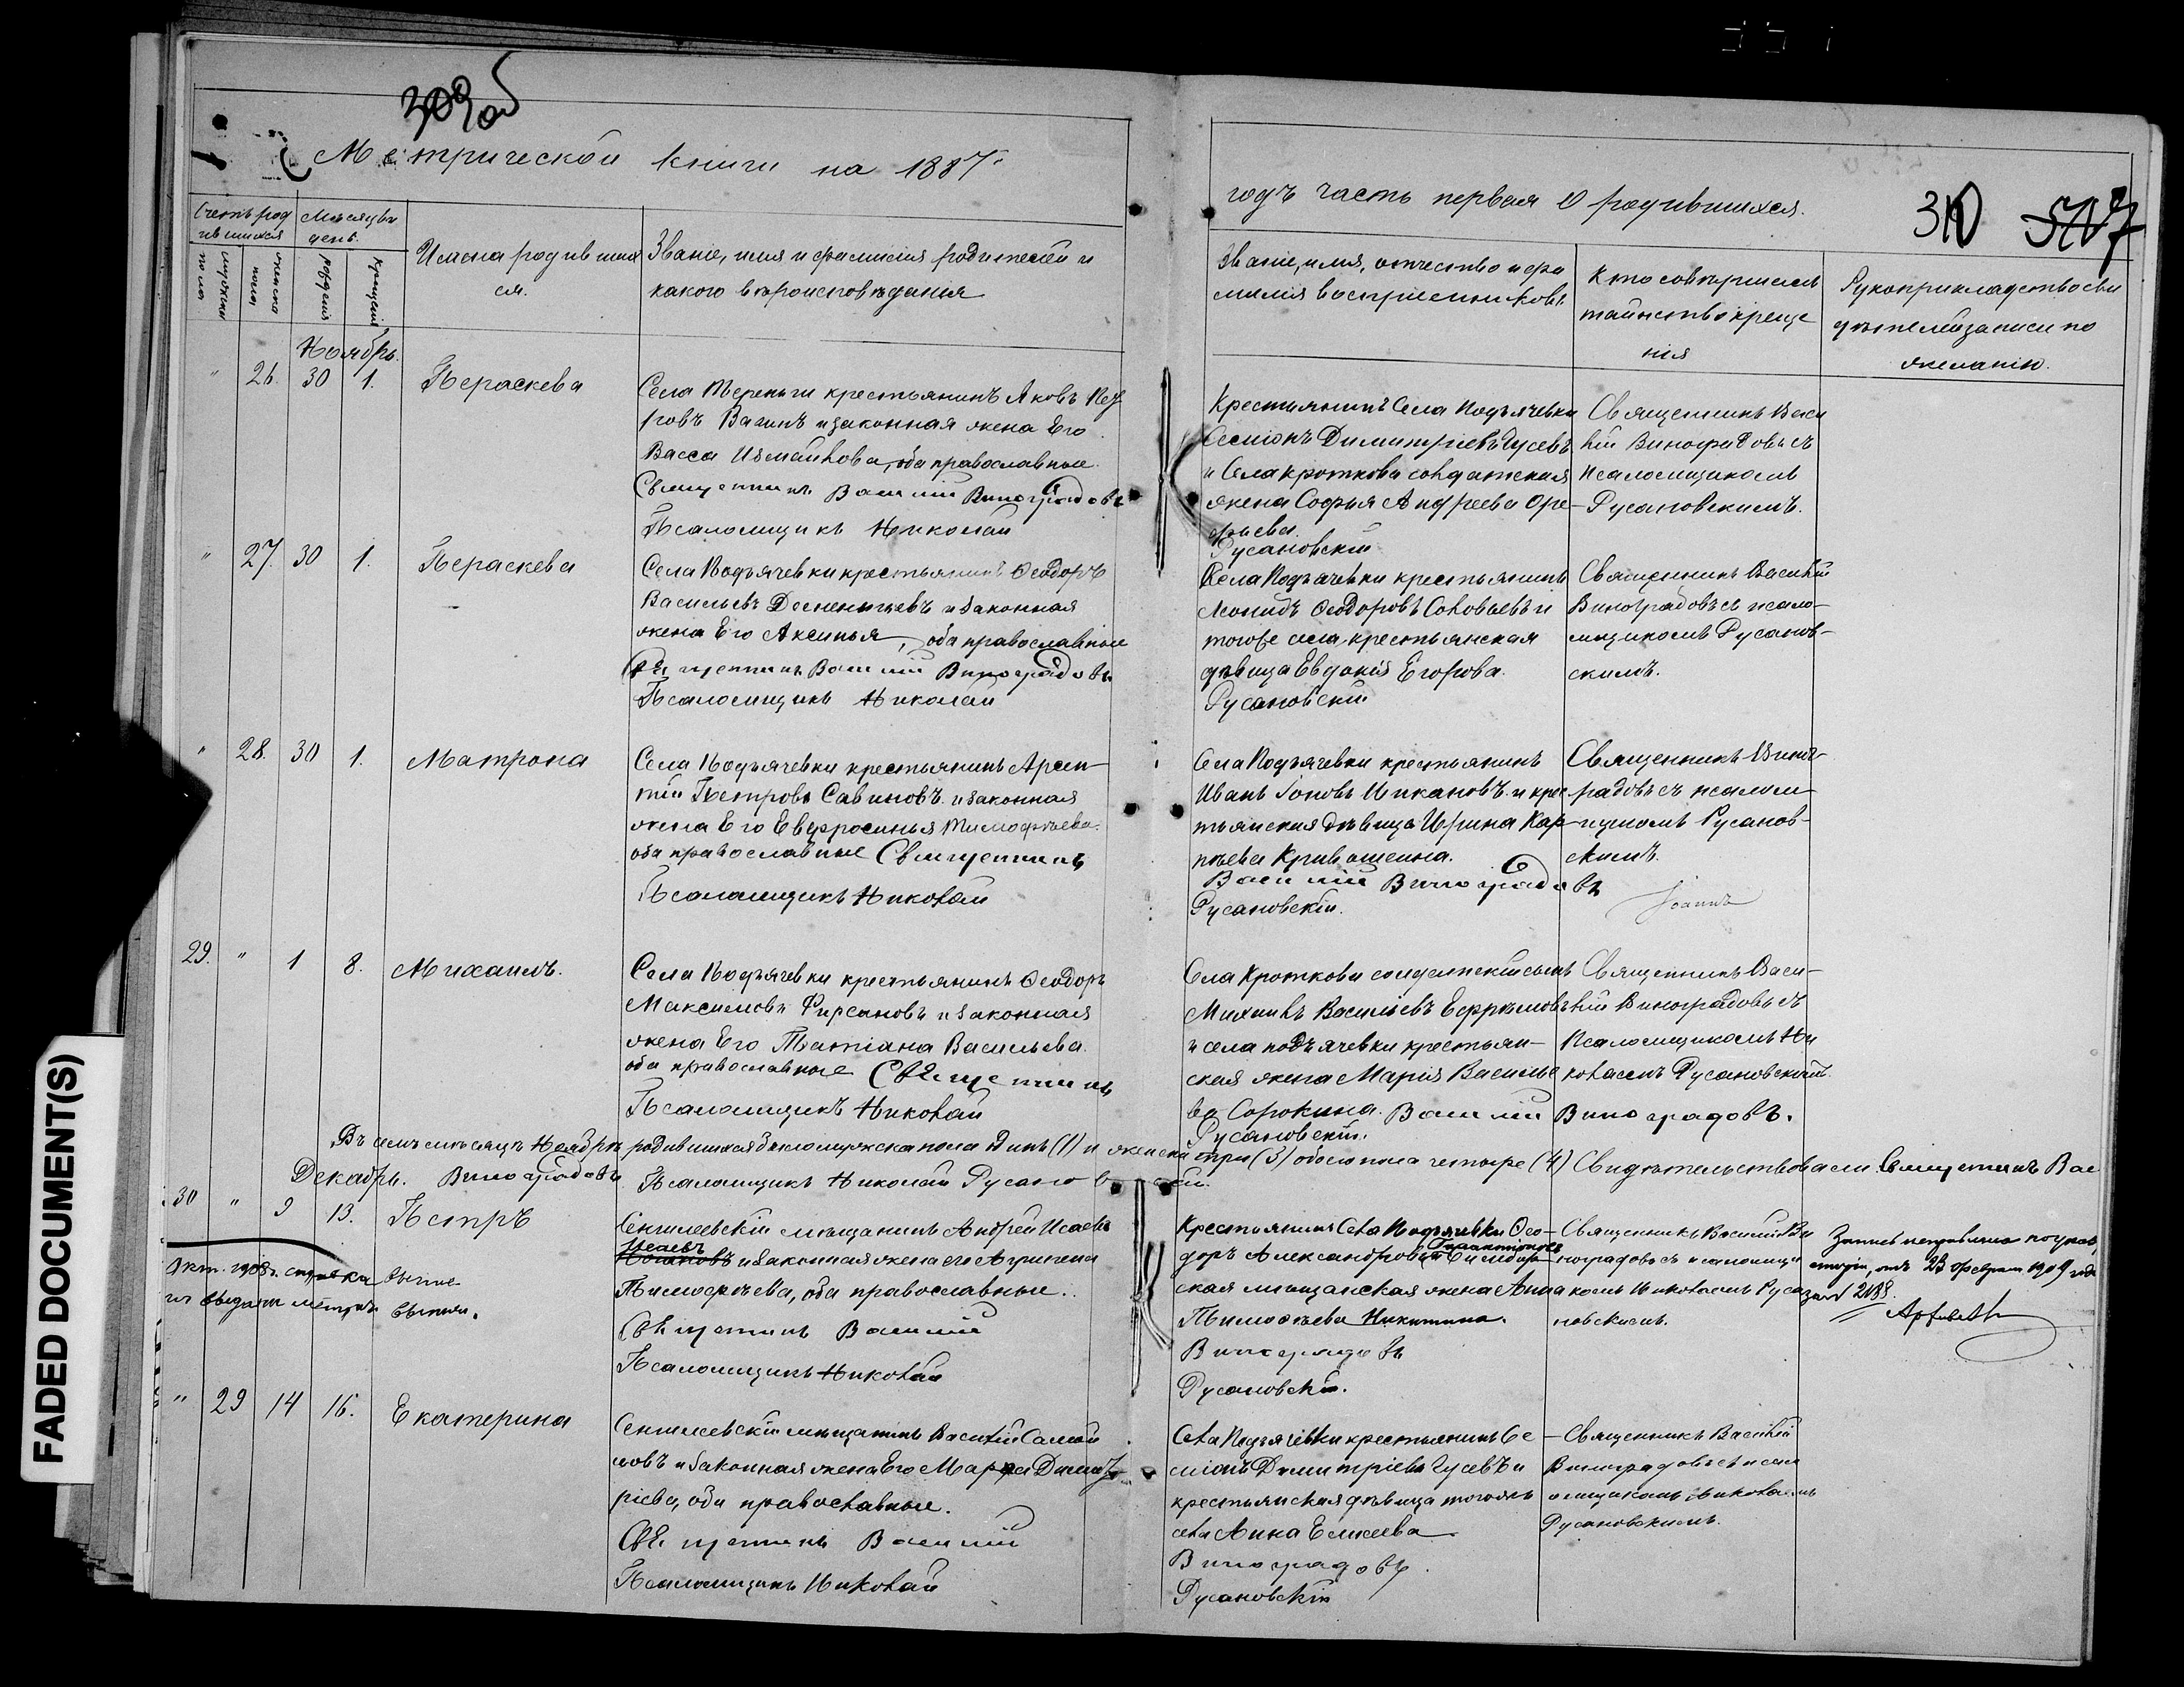 309 об
Метрической книги на 1887
годъ часть первая о родившихся.
310 517
Счетъ род
ившихся
Мѣсяцъ и
день.
мужска
пола
женска
пола
рожденія
крещенія
Имена родивших
ся.
Званіе, имя и фамилія родителей и
какого вѣроисповѣданія
Званіе, имя, отчество и фа
милія воспріемниковъ
Кто совершалъ
таинство креще
нія
Рукоприкладство сви
дѣтелей записи по
желанію.
Ноябрь.
" 26. 30 1. Пераскева
Села Тереньги крестьянинъ Яковъ Пет
ровъ Вагинъ и законная жена Его
Васса Измайлова, оба православные.
Священникъ Василій Виноградовъ
Псаломщикъ Николай
Крестьянинъ Села Подъячевки
Семіонъ Димитріевъ Гусевъ
и Села Кроткова солдатская
жена Софья Андреева Оре-
фьева.
Русановскій
Священникъ Васи
лій Виноградовъ съ
псаломщикомъ
Русановскимъ.
" 27. 30 1. Пераскева
Села Подъячевки крестьянинъ Ѳеодоръ
Васильевъ Дееменьтьевъ и законная
жена Его Аксинья, оба православные
Священникъ Василій Виноградовъ
Псаломщикъ Николай
Села Подъячевки крестьянинъ
Леонидъ Ѳеодоровъ Соловьевъ и
тогоже села крестьянская
дѣвица Евдокія Егорова.
Русановскій
Священникъ Василій
Виноградовъ съ псало-
мщикомъ Русанов-
скимъ.
" 28. 30 1. Матрона
Села Подъячевки крестьянинъ Арсен-
тій Петровъ Савиновъ и законная
жена Его Евфросинья Тимофѣева.
оба православные Священникъ
Псаломщикъ Николай
Села Подъячевки крестьянинъ
Иванъ Іоновъ Шикановъ и крес
тьянская дѣвица Ирина Кар-
пѣева Кривошеина.
Василій Виноградовъ
Русановскій.
Священникъ Виног-
радовъ съ псалом-
щикомъ Русанов-
скимъ.
Іоаннъ
29. " 1 8. Михаилъ.
Села Подъячевки крестьянинъ Ѳеодоръ
Максимовъ Фирсановъ и законная
жена Его Татіана Васильева.
оба православные Священникъ
Псаломщикъ Николай
Села Кроткова солдатскій сынъ
Михаилъ Васильевъ Ефремовъ
и села подъячевки крестьян-
ская жена Марія Василье
ва Сорокина. Василій Виноградовъ.
Русановскій.
Священникъ Васи-
лій Виноградовъ съ
Псаломщикомъ Ни
колаемъ Русановскимъ.
Въ семъ мѣсяцѣ Ноябрѣ родившихся было мужска пола одинъ (1) и женска три (3) обоего пола четыре (4) Свидѣтельствовали Священникъ Вас
Декабрь. Виноградовъ Псаломщикъ Николай Русановскій.
30 " 9 13. Петръ
Сенгилеевскій мѣщанинъ Андрей Исаевъ
Исаевъ
и законная жена его Агрипена
Тимофѣева, оба православные.
Священникъ Василій
Псаломщикъ Николай
Крестьянинъ Села Подъячевки Ѳео-
доръ Александровъ Галактіоновъ и Симбир-
ская мѣщанская жена Анна
Тимофѣева Никитина.
Виноградовъ
Русановскій.
Священникъ Василій Ви
ноградовъ съ псаломщи
комъ Николаемъ Руса
новскимъ.
Запись исправлена по указ
отъ 23 февраля 1909 года
за № 2188.
Окт. 1908 г. справка
выдана метрич. выпись.
" 29 14 16. Екатерина
Сенгилеевскій мѣщанинъ Василій Самой
ловъ и законная жена Его Марфа Димит-
ріева, оба православные.
Священникъ Василій
Псаломщикъ Николай
Села Подъячевки крестьянинъ Се-
міонъ Димитріевъ Гусевъ и
крестьянская дѣвица тогожъ
села Анна Елисеева
Виноградовъ.
Русановскій
Священникъ Василій
Виноградовъ съ псал
омщикомъ Николаемъ
Русановскимъ.
FADED DOCUMENT(S)